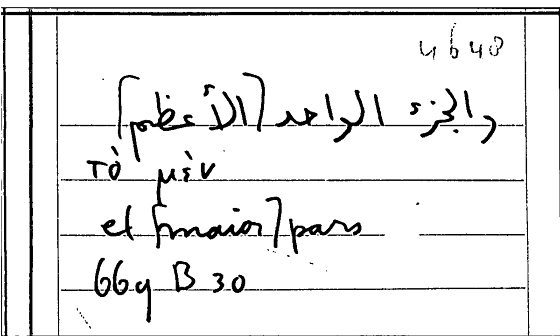 4648
والجزء الواحد [الأعظم]
τὸ μὲν
et [maior] pars
669 B 30